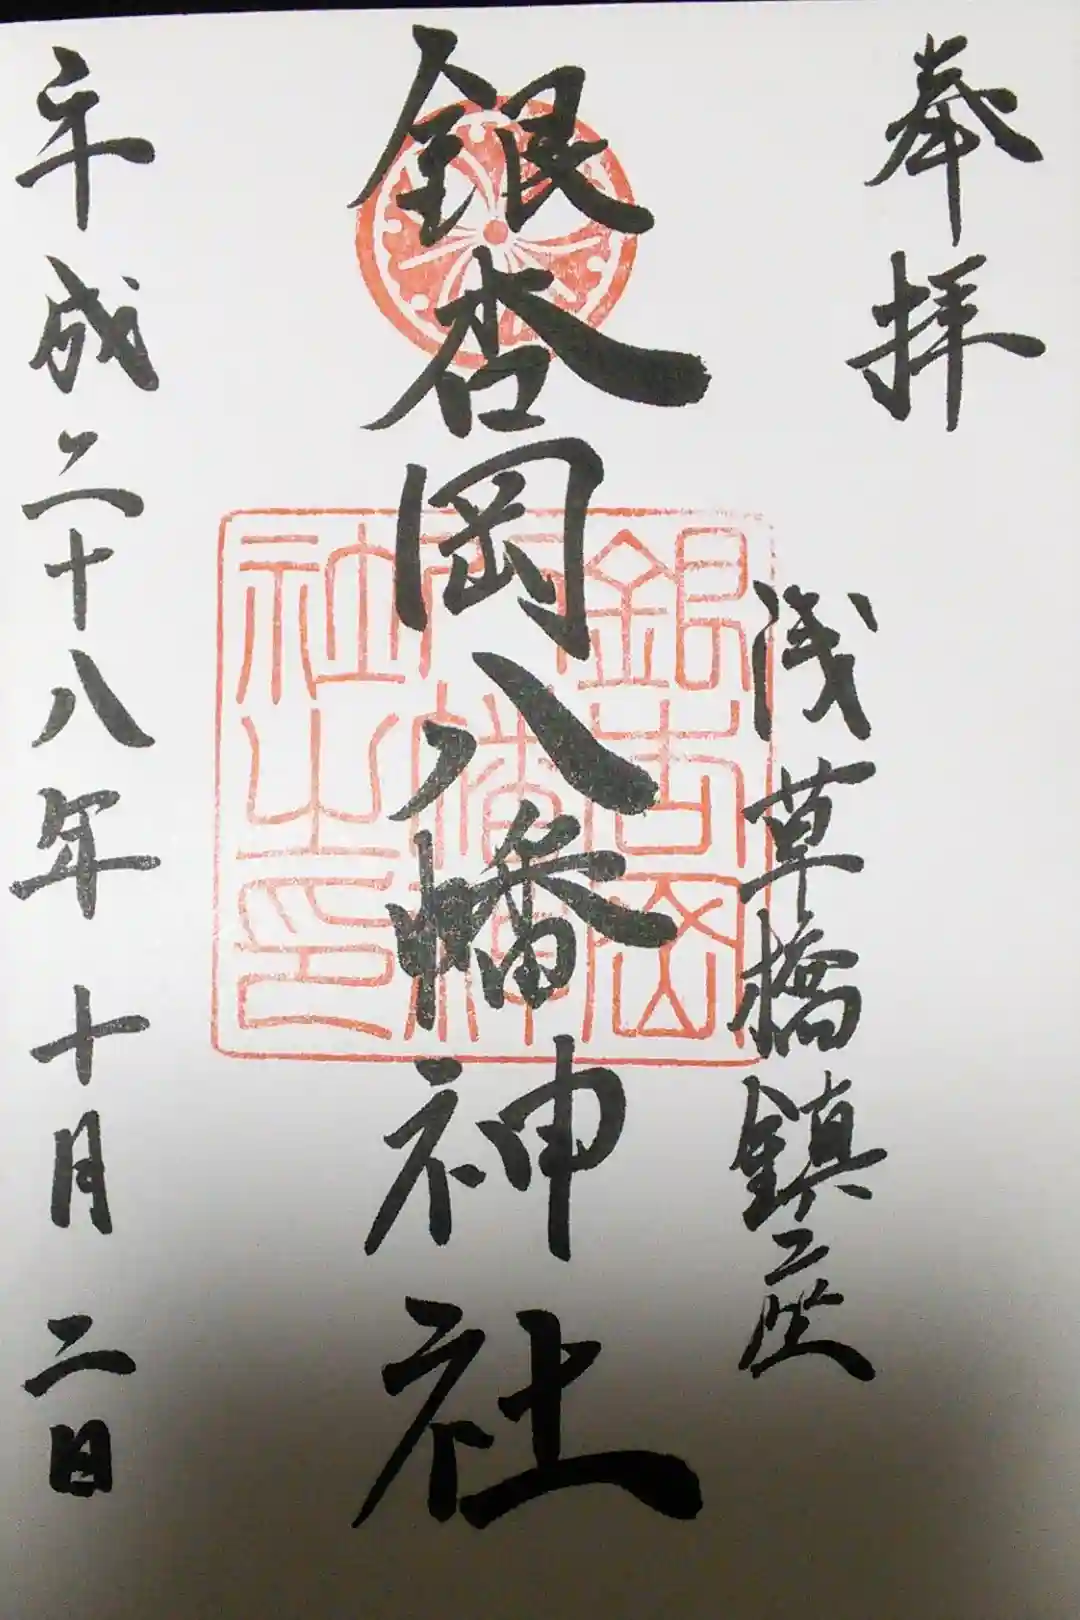 奉拝
浅草橋鎮座
銀杏岡八幡神社
平成二十八年十月二日
銀杏岡
八幡神
社之印